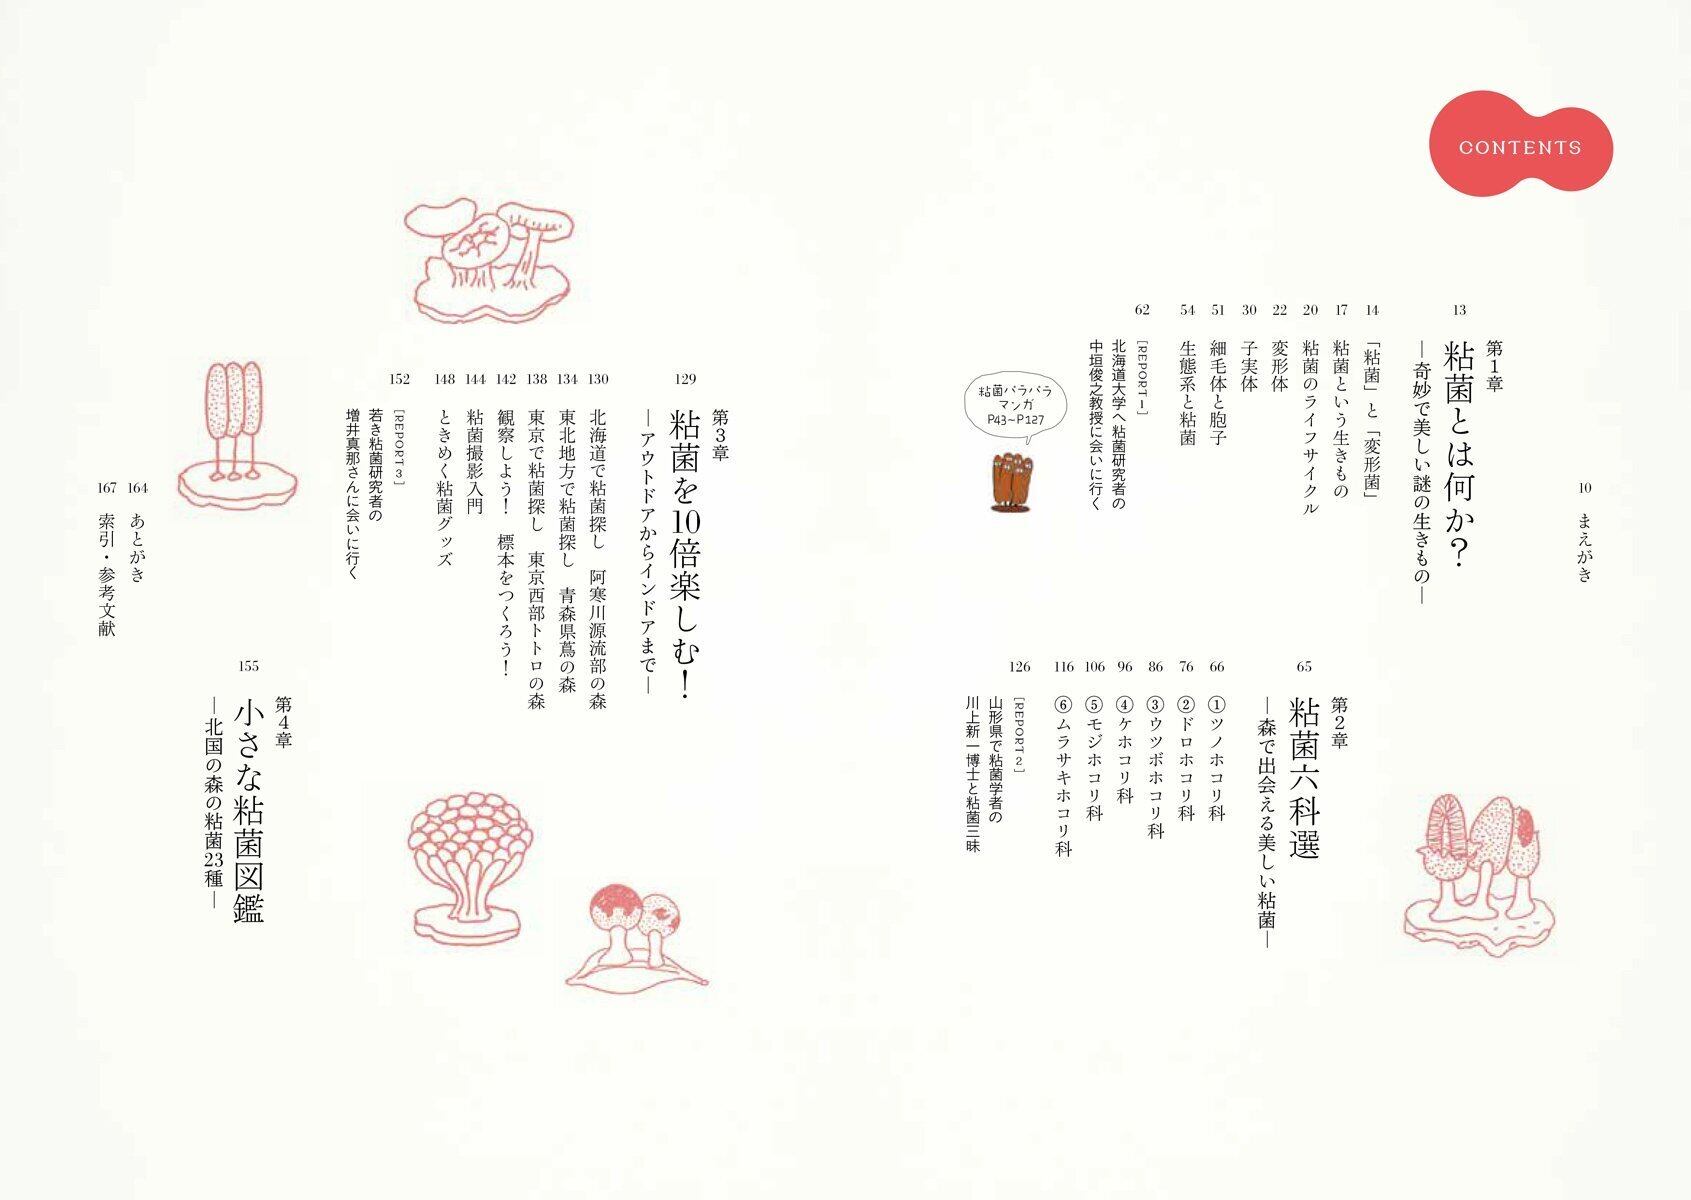 CONTENTS
10 まえがき
第1章
13 粘菌とは何か？
―奇妙で美しい謎の生きもの―
14 「粘菌」と「変形菌」
17 粘菌という生きもの
20 粘菌のライフサイクル
22 変形体
30 子実体
51 細毛体と胞子
54 生態系と粘菌
62 [REPORT 1]
北海道大学へ粘菌研究者の
中垣俊之教授に会いに行く
粘菌パラパラ
マンガ
P43〜P127
第2章
65 粘菌六科選
―森で出会える美しい粘菌―
66 ①ツノホコリ科
76 ②ドロホコリ科
86 ③ウツボホコリ科
96 ④ケホコリ科
106 ⑤モジホコリ科
116 ⑥ムラサキホコリ科
126 [REPORT 2]
山形県で粘菌学者の
川上新一博士と粘菌三昧
第3章
129 粘菌を10倍楽しむ！
―アウトドアからインドアまで―
130 北海道で粘菌探し 阿寒川源流部の森
134 東北地方で粘菌探し 青森県蔦の森
138 東京で粘菌探し 東京西部トトロの森
142 観察しよう！ 標本をつくろう！
144 粘菌撮影入門
148 ときめく粘菌グッズ
152 [REPORT 3]
若き粘菌研究者の
増井真那さんに会いに行く
第4章
155 小さな粘菌図鑑
―北国の森の粘菌23種―
164 あとがき
167 索引・参考文献